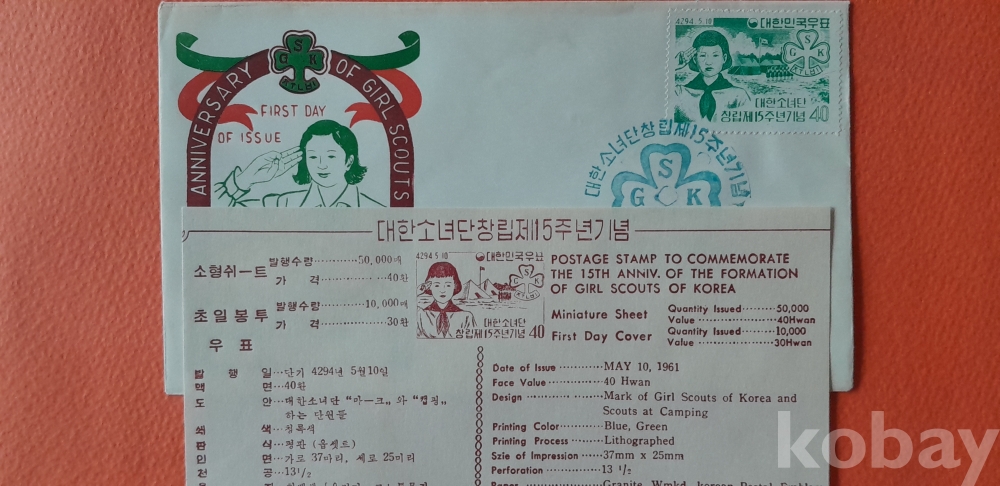 ANNIVERSARY OF GIRL SCOUTS
S
G K
FIRST DAY
OF ISSUE
4294.5.10 대한민국우표
S
G K
대한소녀단
창립제15주년기념 40
대한소녀단창립제15주년기념
S
G K
대한소녀단창립제15주년기념
소형쉬-트 발행수량 50,000매
가 격 40환
초일봉투 발행수량 10,000매
가 격 30환
우 표
발 행 일…단기 4294년 5월10일
액 면…40환
도 안…대한소녀단 "마-크" 와 "캠핑"
하는 단원들
쇄 색…청록색
판 식…평판 (옵셋트)
인 면…가로 37미리, 세로 25미리
천 공…13 1/2
4294.5.10 대한민국우표
대한소녀단
창립제15주년기념 40
POSTAGE STAMP TO COMMEMORATE
THE 15TH ANNIV. OF THE FORMATION
OF GIRL SCOUTS OF KOREA
Miniature Sheet Quantity Issued 50,000
Value 40Hwan
First Day Cover Quantity Issued 10,000
Value 30Hwan
Date of Issue MAY 10, 1961
Face Value 40 Hwan
Design Mark of Girl Scouts of Korea and
Scouts at Camping
Printing Color Blue, Green
Printing Process Lithographed
Szie of Impression 37mm x 25mm
Perforation 13 1/2
Paper Granite, Wmkd, korean Postal Emblem
kobay